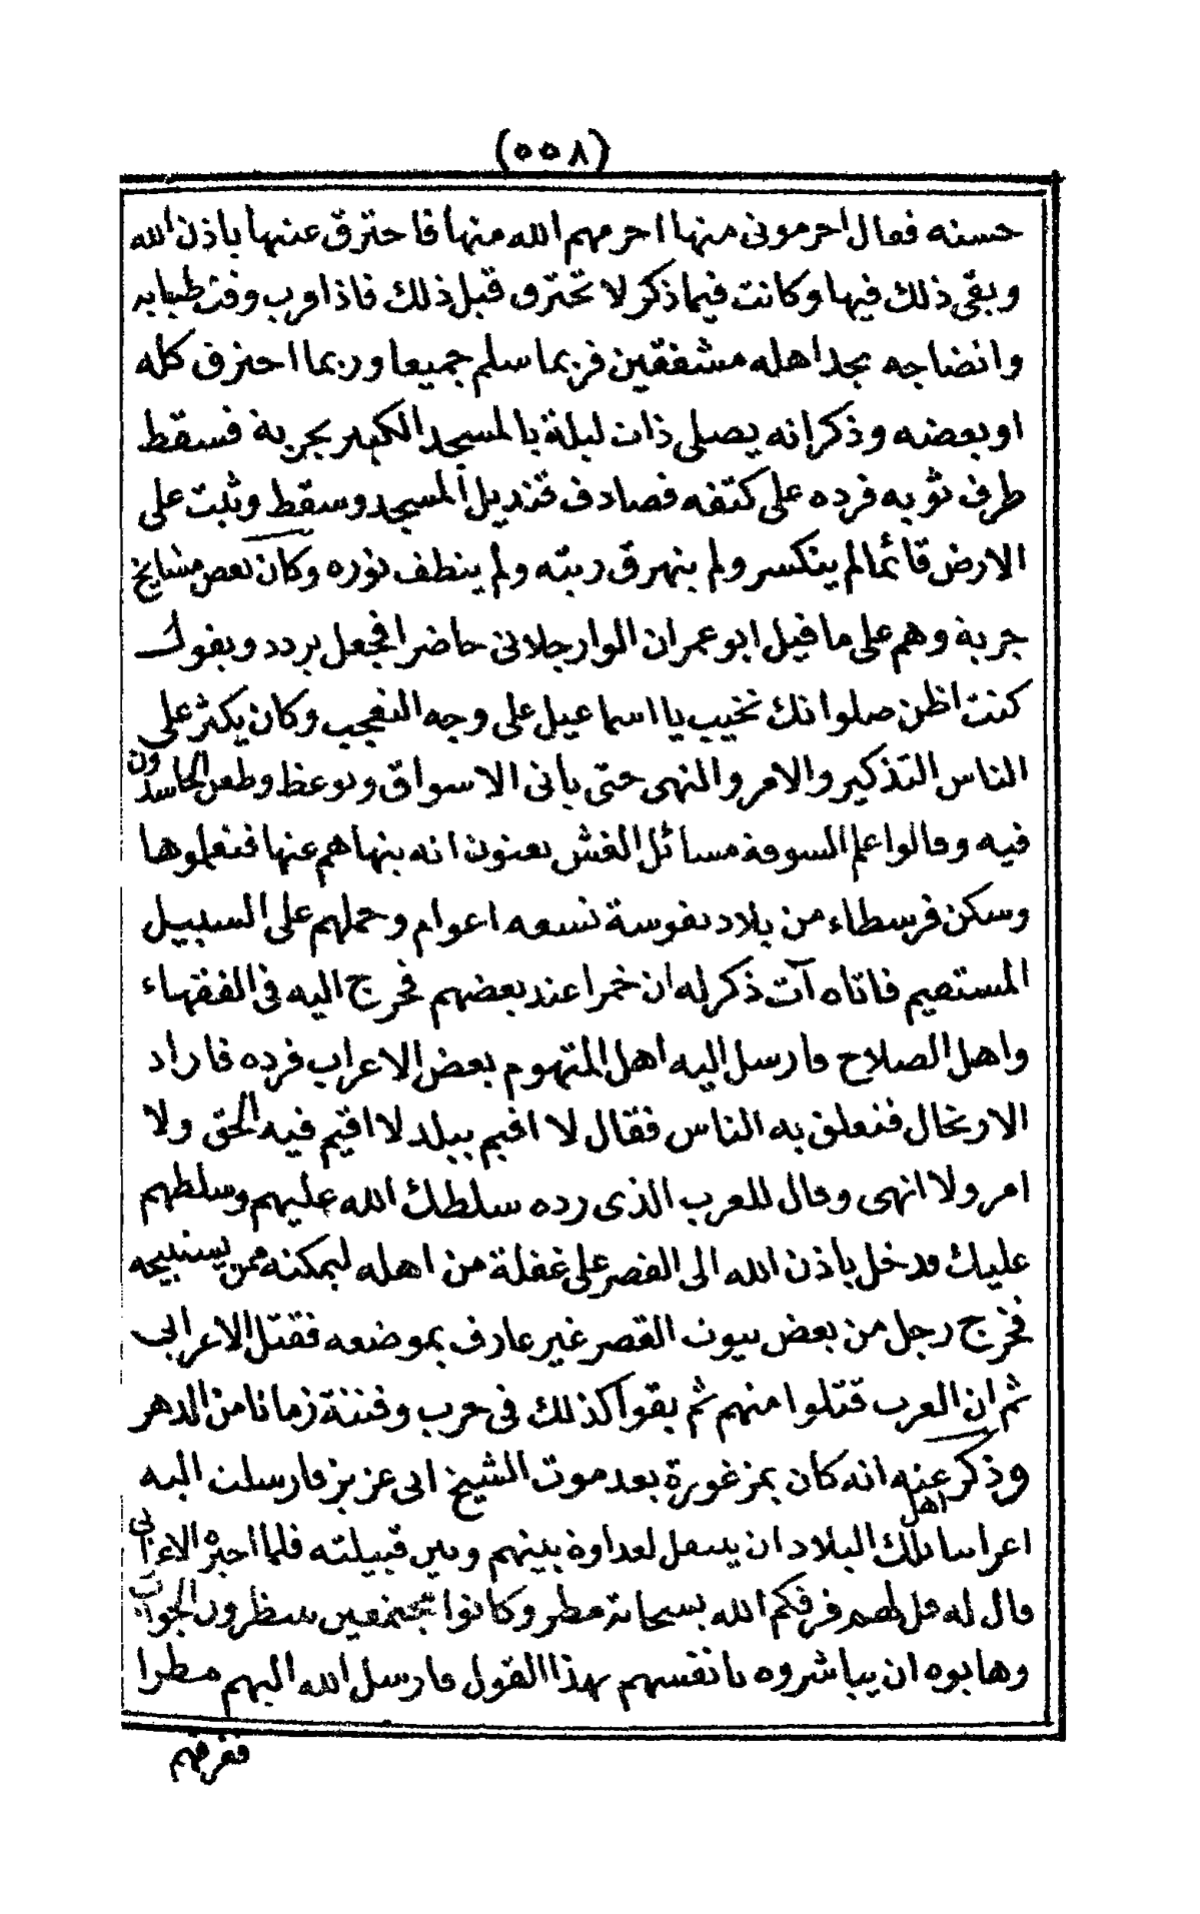 (٥٥٨)
حسنه فقال احرمونى منها احرمهم الله منها فاحترق عنبها باذن الله
وبقى ذلك فيها وكانت فيما ذكر لا تحترق قبل ذلك فاذا وقت طيابه
وانضاجه يجد اهله مشفقين فربما سلم جميعا وربما احترق كله
او بعضه وذكر انه يصلى ذات ليلة بالمسجد الكبير بجربة فسقط
طرف ثوبه فرده على كتفه فصادف قنديل المسجد وسقط وثبت على
الارض قائما لم ينكسر ولم ينهرق زيته ولم ينطف نوره وكان بعض مشايخ
جربة وهم على ما قيل ابو عمران الوارجلانى حاضرا فجعل يردد ويقول
كنت اظن صلواتك تخيب يا اسماعيل على وجه التعجب وكان يكثر على
الناس التذكير والامر والنهى حتى يأتى الاسواق ويوعظ وطعن الحاسدون
فيه وقالوا علم السوقة مسائل الغش يعنون انه ينهاهم عنها فتعلموها
وسكن فرسطاء من بلاد نفوسة تسعه اعوام وحملهم على السبيل
المستقيم فاتاه آت ذكر له ان خمرا عند بعضهم فخرج اليه فى الفقهاء
واهل الصلاح فارسل اليه اهل المتهوم بعض الاعراب فرده فاراد
الارتحال فتعلق به الناس فقال لا اقيم ببلد لا اقيم فيه الحق ولا
امر ولا انهى وقال للعرب الذى رده سلطك الله عليهم وسلطهم
عليك ودخل باذن الله الى القصر على غفلة من اهله ليمكنه ممن يستبيحه
فخرج رجل من بعض بيوت القصر غير عارف بموضعه فقتل الاعرابى
ثم ان العرب قتلوا منهم ثم بقوا كذلك فى حرب وفتنة زمانا من الدهر
وذكر عنه انه كان بمزغورة بعد موت الشيخ ابى عزيز فارسلت اليه
اعرابيا اهل تلك البلاد ان ينتقل لعداوة بينهم وبين قبيلته فلما اخبره الاعرابى
قال له قل لهم فرقكم الله بسحابة مطر وكانوا مجتمعين ينتظرون الجواب
وهابوه ان يباشروه بانفسهم بهذا القول فارسل الله اليهم مطرا
ففرقهم